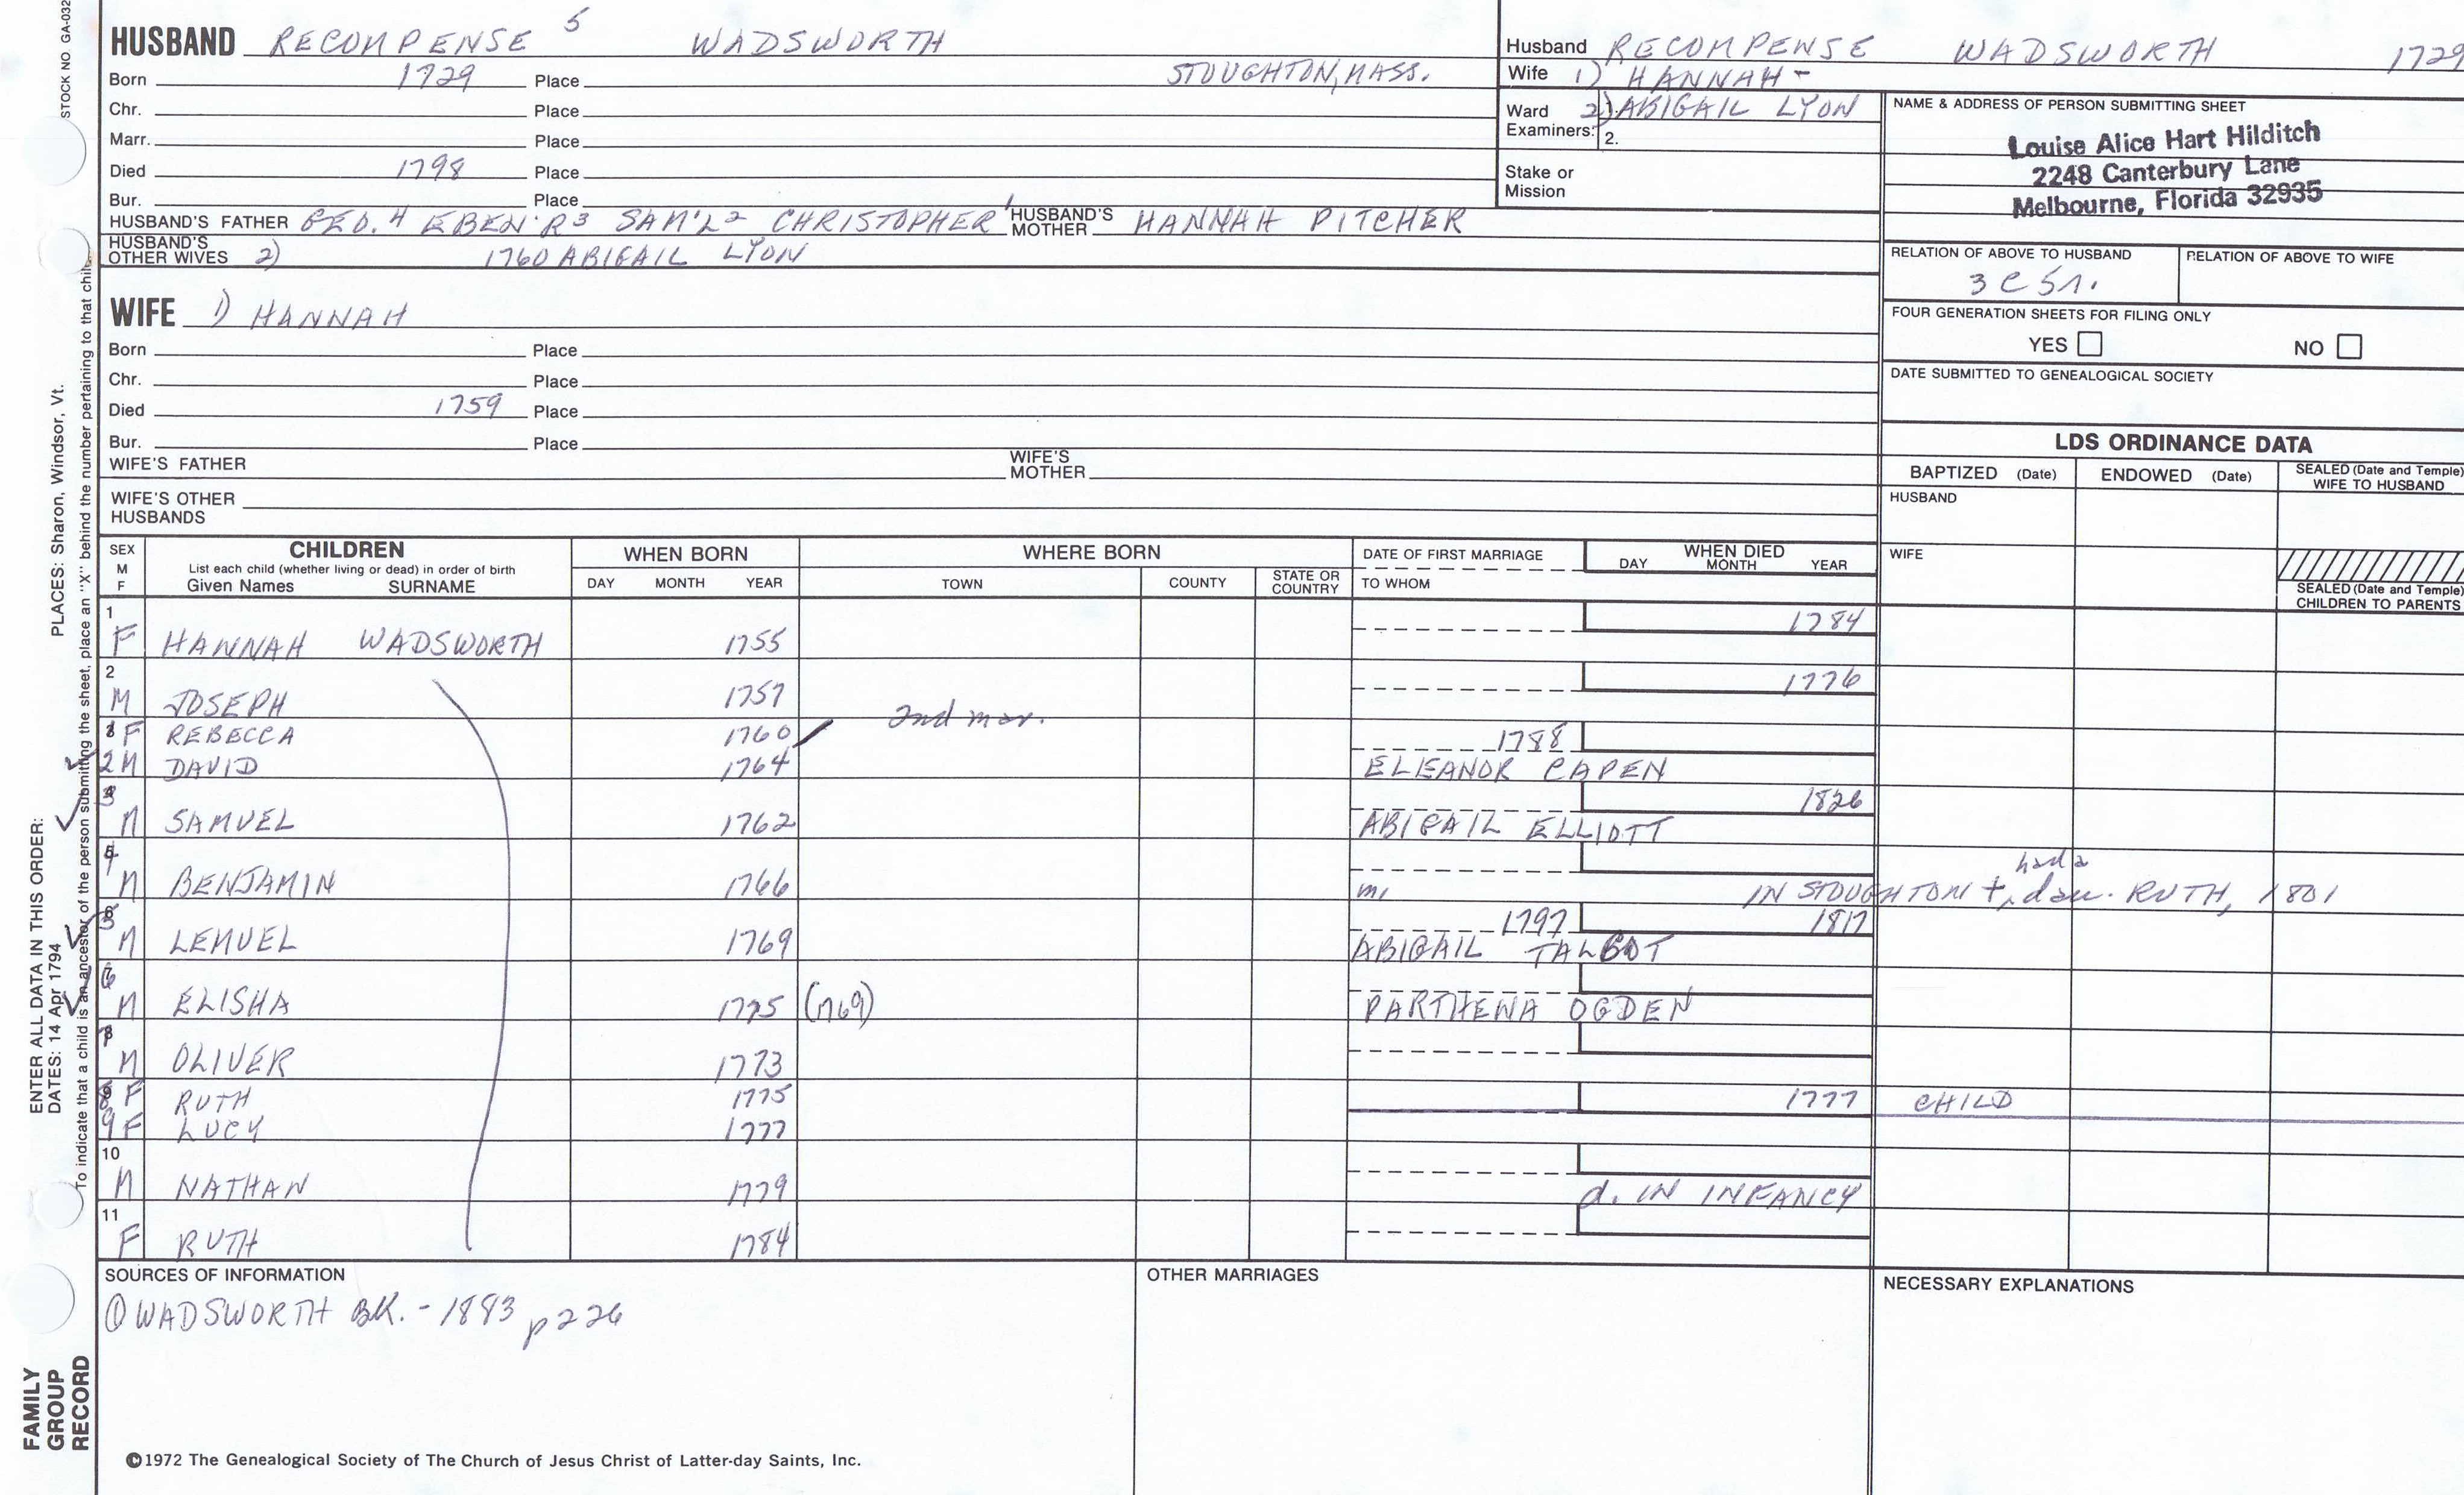 STOCK NO GA-032
HUSBAND RECOMPENSE 5 WADSWORTH
Born 1729 Place STOUGHTON, MASS.
Chr. Place
Marr. Place
Died 1798 Place
Bur. Place
HUSBAND'S FATHER GEO. 4 EBEN'R 3 SAM'L 2 CHRISTOPHER 1 HUSBAND'S MOTHER HANNAH PITCHER
HUSBAND'S OTHER WIVES 2) 1760 ABIGAIL LYON
WIFE 1) HANNAH
Born Place
Chr. Place
Died 1759 Place
Bur. Place
WIFE'S FATHER WIFE'S MOTHER
WIFE'S OTHER HUSBANDS
Husband RECOMPENSE WADSWORTH 1729
Wife 1) HANNAH -
Ward 1. 2) ABIGAIL LYON
Examiners: 2.
Stake or Mission
NAME & ADDRESS OF PERSON SUBMITTING SHEET
Louise Alice Hart Hilditch
2248 Canterbury Lane
Melbourne, Florida 32935
RELATION OF ABOVE TO HUSBAND RELATION OF ABOVE TO WIFE
3 C 5 r.
FOUR GENERATION SHEETS FOR FILING ONLY
YES NO
DATE SUBMITTED TO GENEALOGICAL SOCIETY
LDS ORDINANCE DATA
BAPTIZED (Date) ENDOWED (Date) SEALED (Date and Temple) WIFE TO HUSBAND
HUSBAND
WIFE
SEALED (Date and Temple) CHILDREN TO PARENTS
SEX M F CHILDREN WHEN BORN WHERE BORN DATE OF FIRST MARRIAGE WHEN DIED
List each child (whether living or dead) in order of birth
Given Names SURNAME DAY MONTH YEAR TOWN COUNTY STATE OR COUNTRY TO WHOM DAY MONTH YEAR
1 F HANNAH WADSWORTH 1755 1784
2 M JOSEPH 1757 1776
2nd mar.
1 F REBECCA 1760
2 M DAVID 1764 1788 ELEANOR CAPEN
3 M SAMUEL 1762 ABIGAIL ELLIOTT 1826
4 M BENJAMIN 1766 m. IN STOUGHTON +, had a dau. RUTH, 1801
5 M LEMUEL 1769 1797 ABIGAIL TALBOT 1817
6 M ELISHA 1775 (1769) PARTHENA OGDEN
7 M OLIVER 1773
8 F RUTH 1775 1777 CHILD
9 F LUCY 1777
10 M NATHAN 1779 d. IN INFANCY
11 F RUTH 1784
SOURCES OF INFORMATION
① WADSWORTH BK. - 1883 p 226
OTHER MARRIAGES
NECESSARY EXPLANATIONS
©1972 The Genealogical Society of The Church of Jesus Christ of Latter-day Saints, Inc.
FAMILY GROUP RECORD
ENTER ALL DATA IN THIS ORDER:
DATES: 14 Apr 1794 PLACES: Sharon, Windsor, Vt.
To indicate that a child is an ancestor of the person submitting the sheet, place an "X" behind the number pertaining to that child.